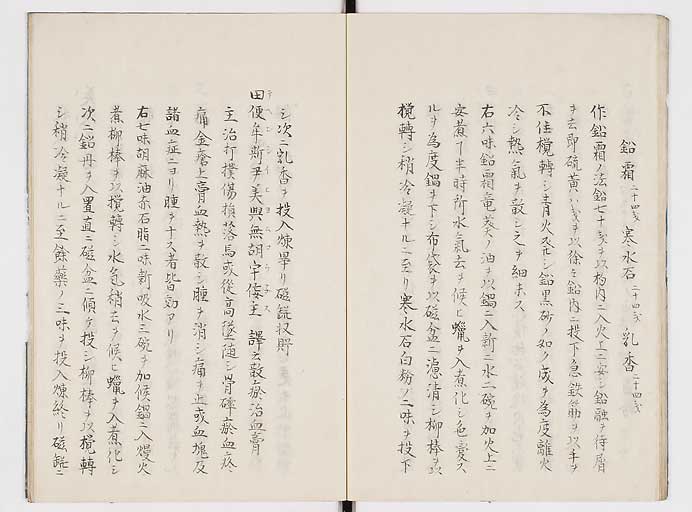 鉛霜二十四戔 寒水石二十四戔 乳香二十四戔
作鉛霜ノ法鉛七十戔ヲ以杓内ニ入火上ニ安シ鉛融ヲ待屑
ヲ去即硫黄八戔ヲ以徐々鉛内ニ投下急鉄筋ヲ以手ヲ
不住攪轉シ青火発シ鉛黒砂ノ如ク成ヲ為度離火
冷シ熱氣ヲ散シ之ヲ細末ス
右六味鉛霜竜葵ノ油ヲ以鍋ニ入新ニ水二碗ヲ加火上ニ
安煮丁半時所水氣去ヲ候ヒ蠟ヲ入煮化シ色変ス
ルヲ為度鍋ヲ下シ布袋ヲ以磁盆ニ濾清シ柳棒ヲ以
攪轉シ稍冷凝ナルニ至リ寒水石白粉ノ二味ヲ投下
シ次ニ乳香ヲ投入煉畢リ磁龞収貯
田便牟斯尹美與無胡宇倭王 譯云散瘀治血膏
主治打撲傷損落馬或從高墜堕シ骨碎瘀血疼
痛金瘡上膏血熱ヲ散シ腫ヲ消シ痛ヲ止或血塊及
諸血症ニヨリ腫ヲナス者皆効アリ
右七味胡麻油赤石脂二味新吸水三碗ヲ加候鍋ニ入慢火
煮柳棒ヲ以攪轉シ水色稍去ヲ候ヒ蠟ヲ入煮化シ
次ニ鉛丹ヲ入置直ニ磁盆ニ傾ケ投シ柳棒ヲ以攪轉
シ稍冷凝ナルニ至餘薬ノ三味ヲ投入煉終リ磁龞ニ